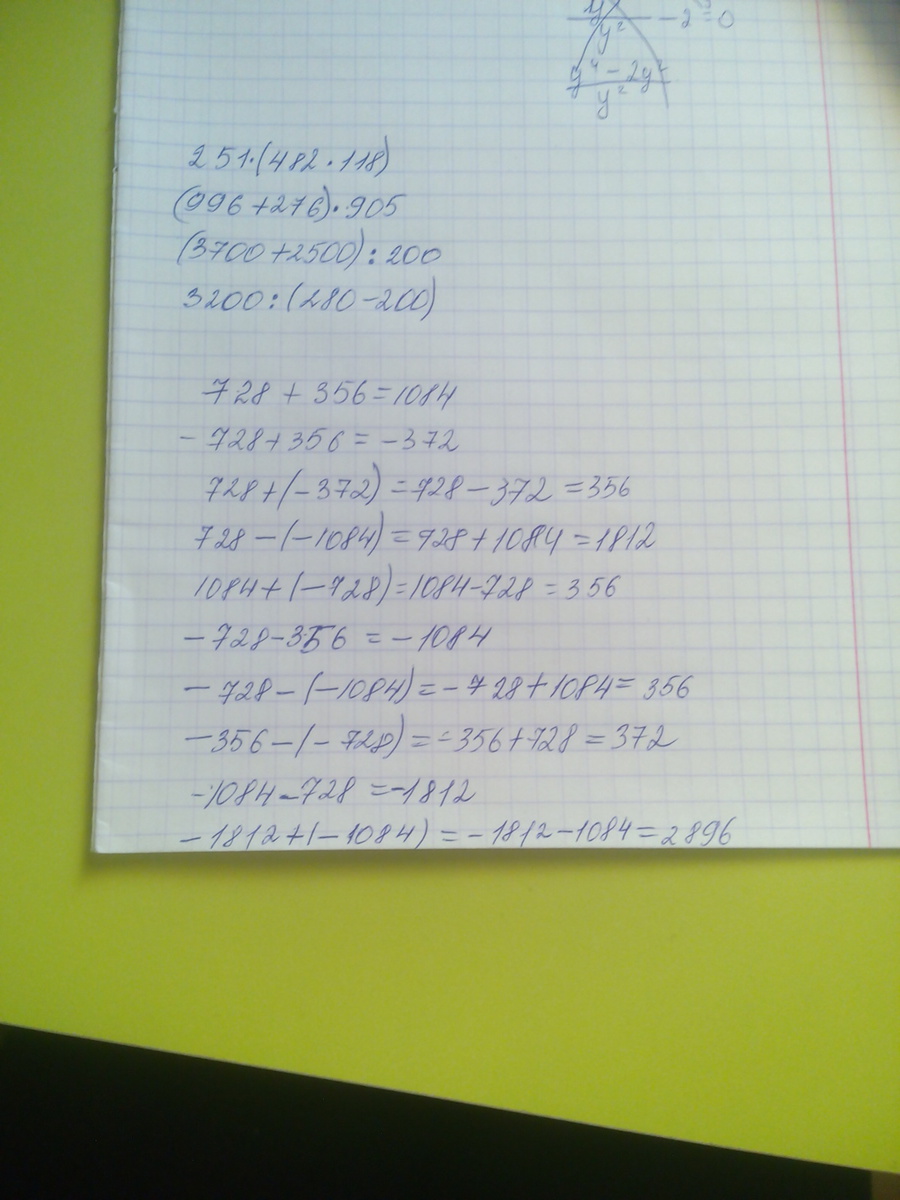 y² - 2 = 0
y⁴ - 2y²
y²
251·(482·118)
(996+276)·905
(3700+2500):200
3200:(280-200)
728 + 356 = 1084
- 728 + 356 = - 372
728 + (- 372) = 728 - 372 = 356
728 - (- 1084) = 728 + 1084 = 1812
1084 + (- 728) = 1084 - 728 = 356
- 728 - 356 = - 1084
- 728 - (- 1084) = - 728 + 1084 = 356
- 356 - (- 728) = - 356 + 728 = 372
- 1084 - 728 = - 1812
- 1812 + (- 1084) = - 1812 - 1084 = 2896